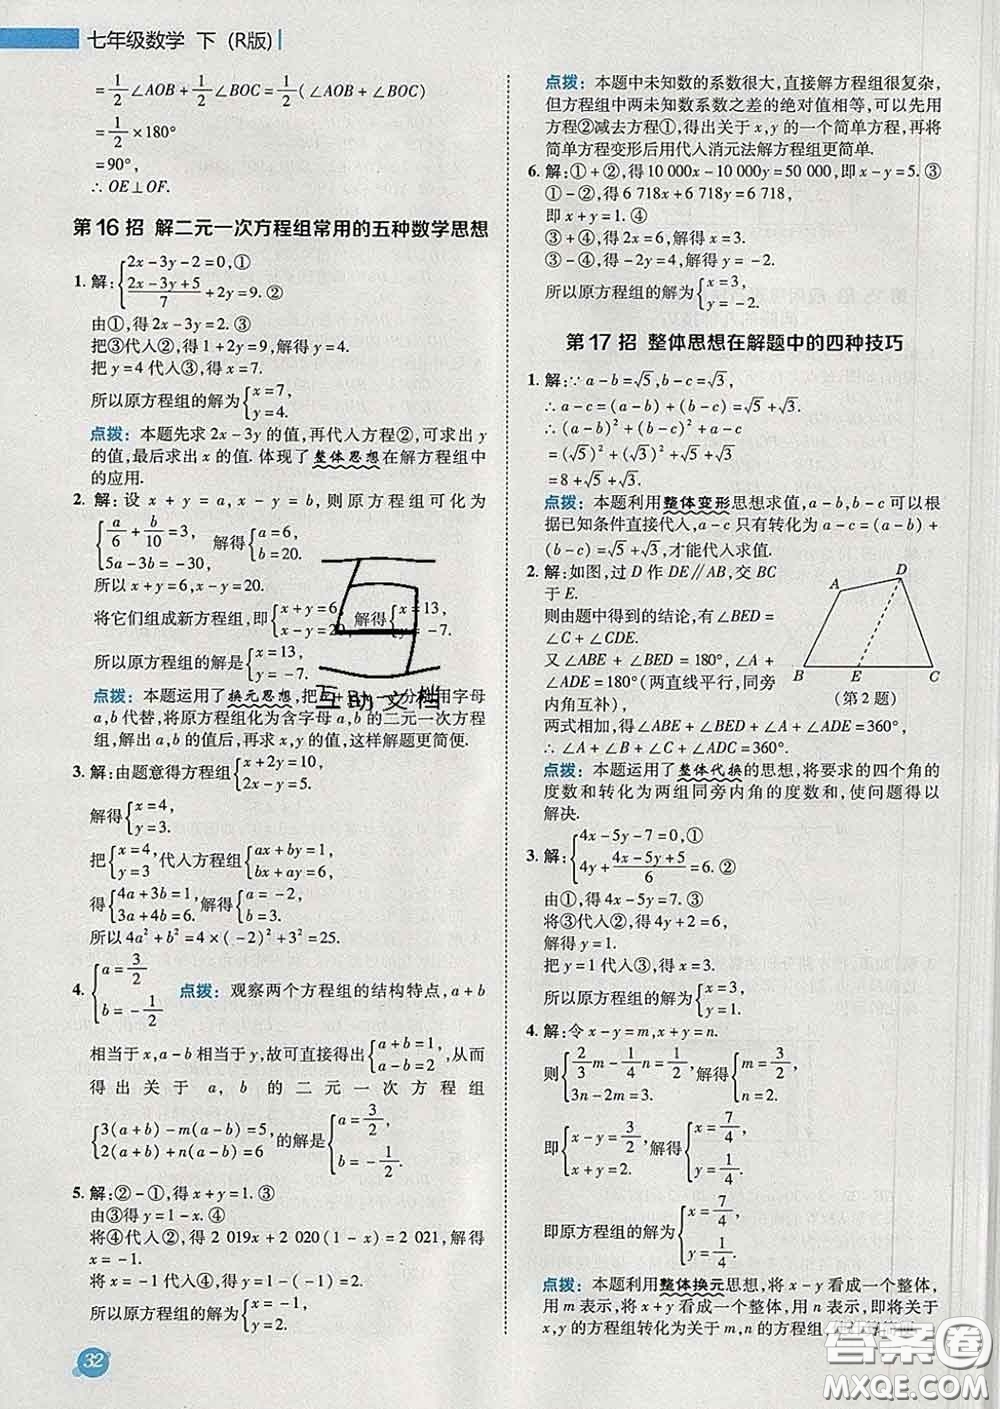 七年级数学 下 (R版)
=1/2∠AOB+1/2∠BOC=1/2(∠AOB+∠BOC)
=1/2×180°
=90°,
∴OE⊥OF.
第16招 解二元一次方程组常用的五种数学思想
1. 解:{2x-3y-2=0,①
(2x-3y+5)/7+2y=9.②
由①,得2x-3y=2.③
把③代入②,得1+2y=9,解得y=4.
把y=4代入③,得x=7.
所以原方程组的解为{x=7,
y=4.
点拨:本题先求2x-3y的值,再代入方程②,可求出y
的值,最后求出x的值.体现了整体思想在解方程组中
的应用.
2. 解:设x+y=a,x-y=b,则原方程组可化为
{a/6+b/10=3, 解得{a=6,
5a-3b=-30, b=20.
所以x+y=6,x-y=20.
将它们组成新方程组,即{x+y=6, 解得{x=13,
x-y=20, y=-7.
所以原方程组的解是{x=13,
y=-7.
点拨:本题运用了换元思想,把x+y,x-y分别用字母
a,b代替,将原方程组化为含字母a,b的二元一次方程
组,解出a,b的值后,再求x,y的值,这样解题更简便.
3. 解:由题意得方程组{x+2y=10,
y=x-1,
解得{x=4,
y=3.
把{x=4, 代入方程组{ax+by=1,
y=3 bx+ay=6,
得{4a+3b=1, 解得{a=-2,
3a+4b=6. b=3.
所以4a²+b²=4×(-2)²+3²=25.
4. {a=3/2
b=-1/2 点拨:观察两个方程组的结构特点,a+b
相当于x,a-b相当于y,故可直接得出{a+b=1, 从而
a-b=2
得出关于a,b的二元一次方程组
{3(a+b)-m(a-b)=5, 的解是{a=3/2,
2(a+b)+n(a-b)=6 b=-1/2.
5. 解:②-①,得x+y=1.③
由③得y=1-x.④
将④代入②,得2 019x+2 020(1-x)=2 021,解得
x=-1.
将x=-1代入④,得y=1-(-1)=2.
所以原方程组的解为{x=-1,
y=2.
32
点拨:本题中未知数的系数很大,直接解方程组很复杂,
但方程组中两未知数系数之差的绝对值相等,可以先用
方程②减去方程①,得出关于x,y的一个简单方程,再将
简单方程变形后用代入消元法解方程组更简单.
6. 解:①+②,得10 000x-10 000y=50 000,即x-y=5.③
①-②,得6 718x+6 718y=6 718,
即x+y=1.④
③+④,得2x=6,解得x=3.
③-④,得-2y=4,解得y=-2.
所以原方程组的解为{x=3,
y=-2.
第17招 整体思想在解题中的四种技巧
1. 解:∵a-b=√5,b-c=√3,
∴a-c=(a-b)+(b-c)=√5+√3.
∴(a-b)²+(b-c)²+a-c
=(√5)²+(√3)²+√5+√3
=8+√5+√3.
点拨:本题利用整体变形思想求值,a-b,b-c可以根
据已知条件直接代入,a-c只有转化为a-c=(a-b)+
(b-c)=√5+√3,才能代入求值.
2. 解:如图,过D作DE∥AB,交BC
于E.
则由题中得到的结论,有∠BED=
∠C+∠CDE.
又∠ABE+∠BED=180°,∠A+
∠ADE=180°(两直线平行,同旁
内角互补),
两式相加,得∠ABE+∠BED+∠A+∠ADE=360°.
∴∠A+∠B+∠C+∠ADC=360°.
A D
B E C
(第2题)
点拨:本题运用了整体代换的思想,将要求的四个角的
度数和转化为两组同旁内角的度数和,使问题得以
解决.
3. 解:{4x-5y-7=0,①
4y+(4x-5y+5)/6=6.②
由①,得4x-5y=7.③
将③代入②,得4y+2=6,
解得y=1.
把y=1代入③,得x=3,
所以原方程组的解为{x=3,
y=1.
4. 解:令x-y=m,x+y=n.
则{2/3m-1/4n=1/2, 解得{m=3/2,
3n-2m=3, n=2.
即{x-y=3/2, 解得{x=7/4,
x+y=2, y=1/4.
即原方程组的解为{x=7/4,
y=1/4.
点拨:本题利用整体换元思想,将x-y看成一个整体,
用m表示,将x+y看成一个整体,用n表示,即将关于
x,y的方程组转化为关于m,n的方程组.
互助文档
答案圈
MXQE.COM